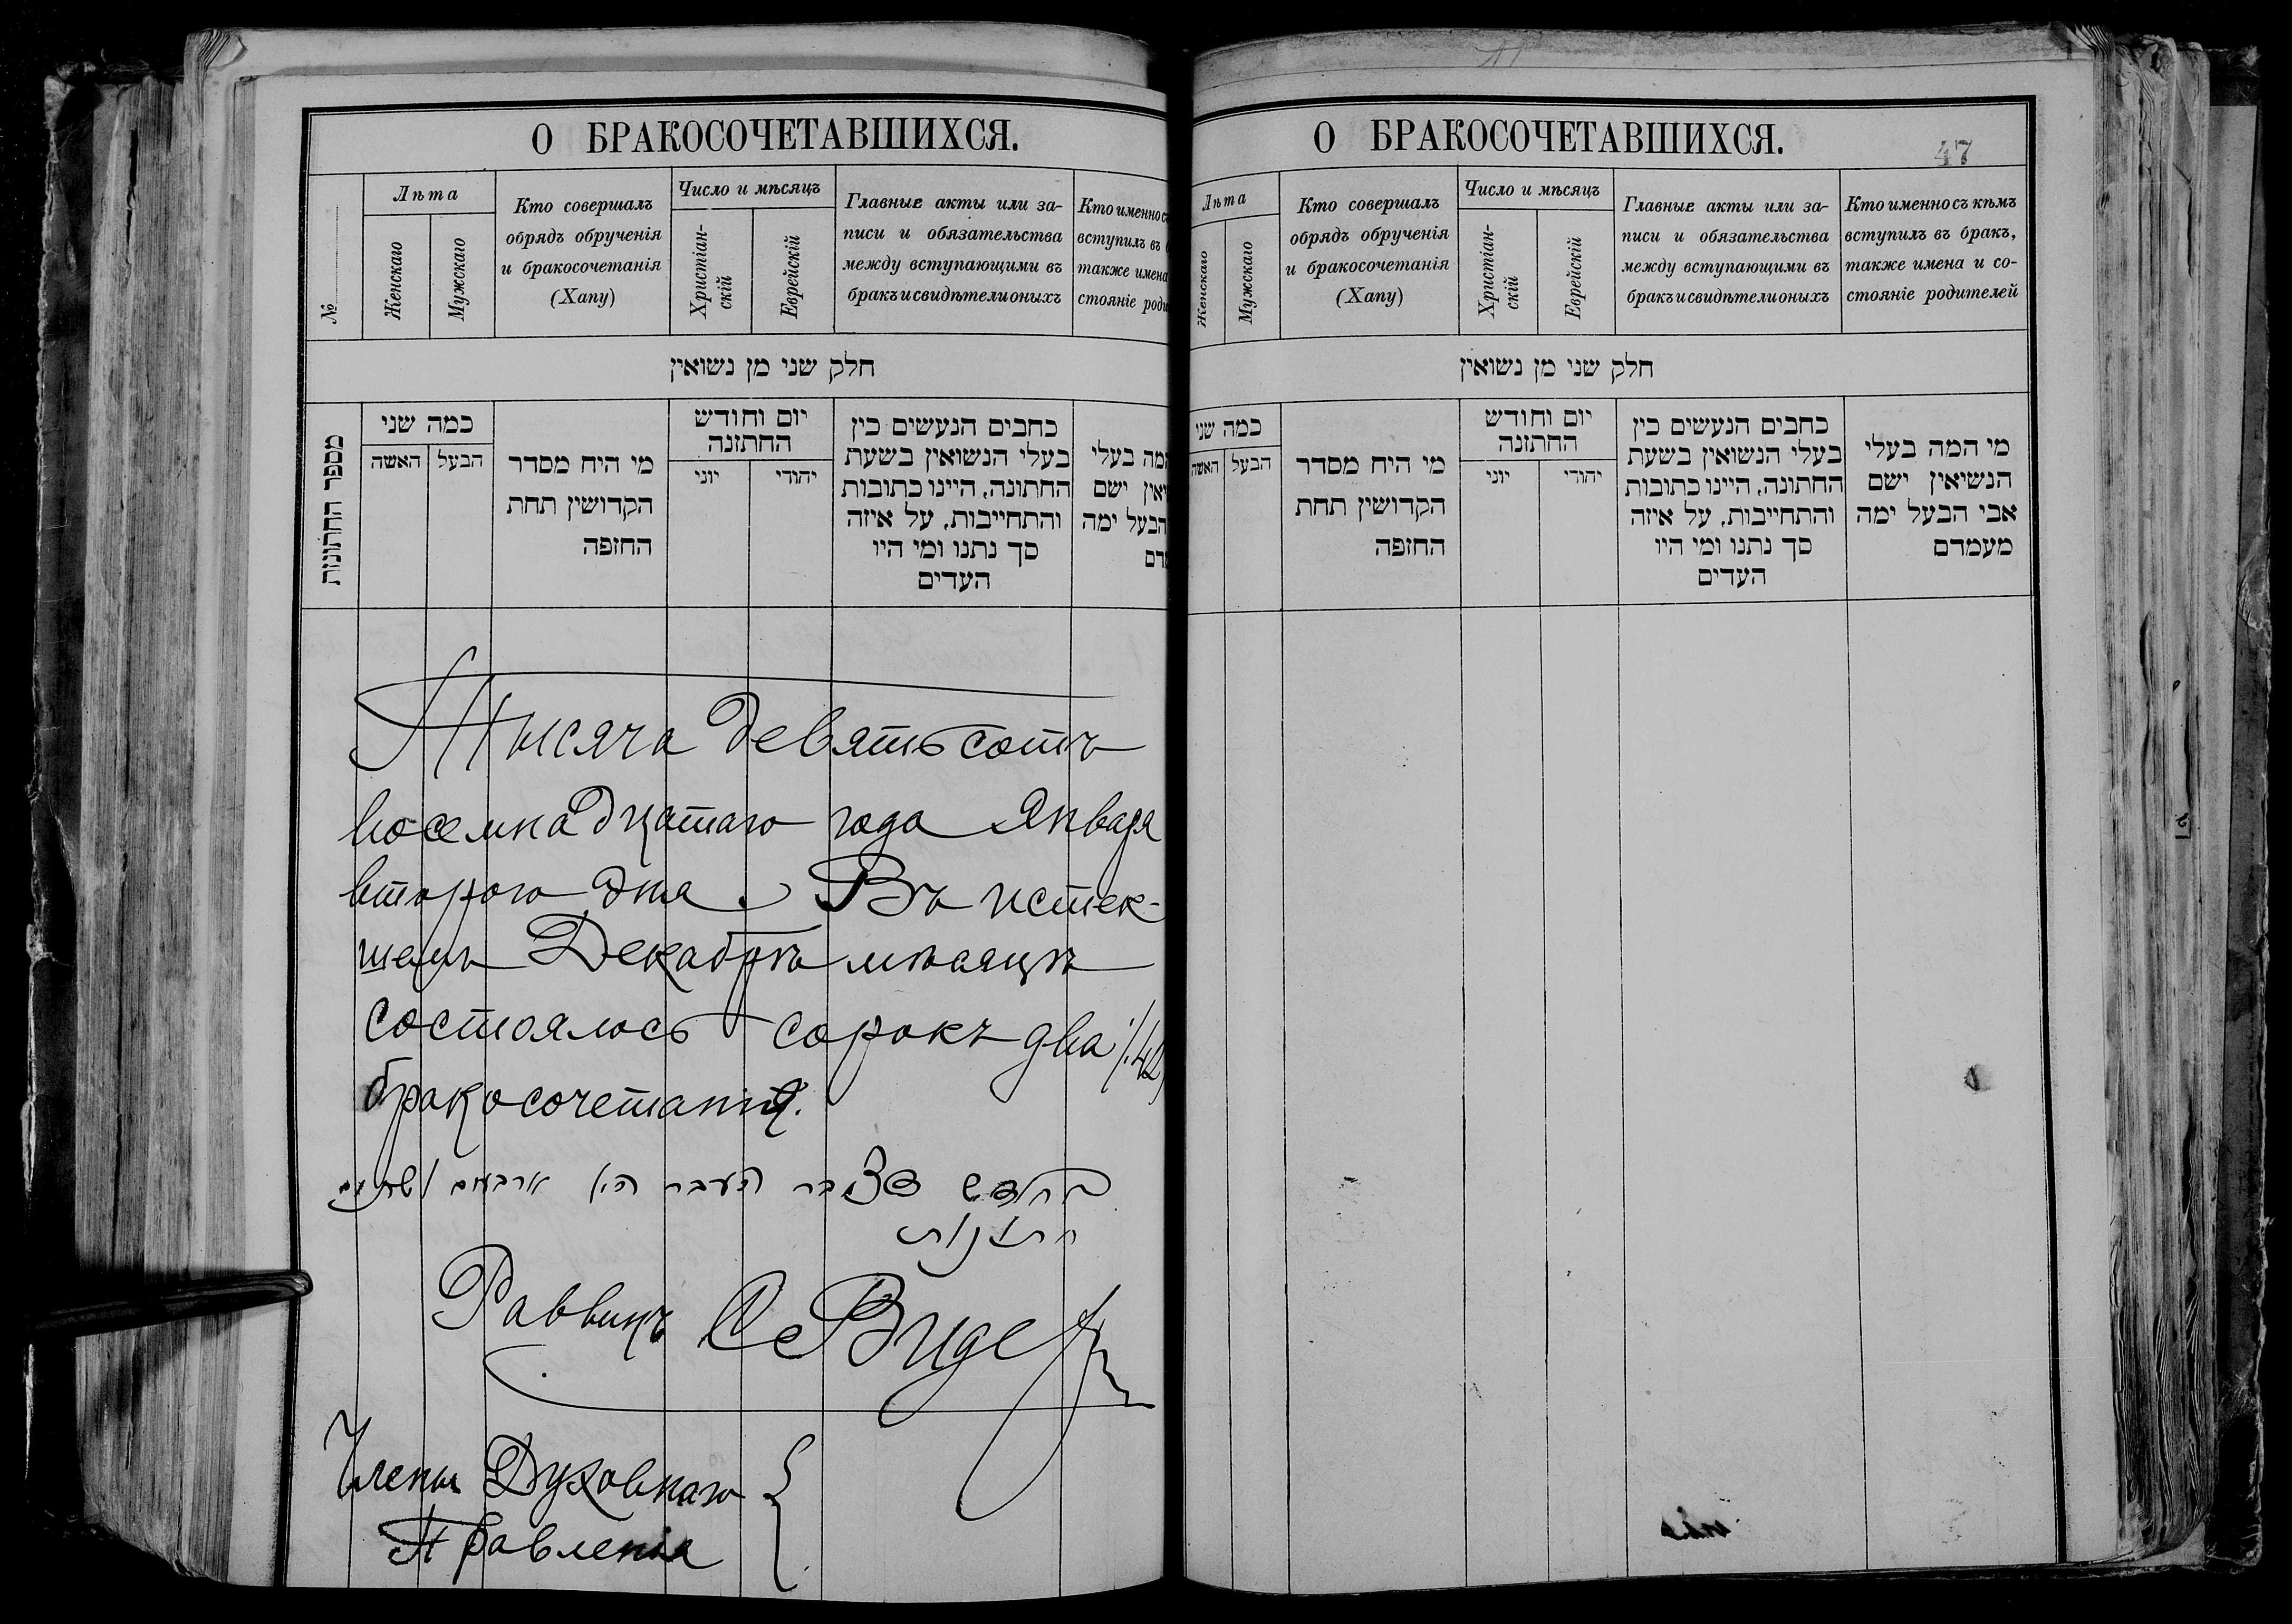 О БРАКОСОЧЕТАВШИХСЯ.
№
Лѣта
Женскаго
Мужскаго
Кто совершалъ
обрядъ обрученія
и бракосочетанія
(Хапу)
Число и мѣсяцъ
Христіан-
скій
Еврейскій
Главные акты или за-
писи и обязательства
между вступающими въ
бракъ и свидѣтели оныхъ
Кто именно с
вступилъ въ
также имена
стояніе роди
חלק שני מן נשואין
מספר החתונות
כמה שני
האשה
הבעל
מי היח מסדר
הקדושין תחת
החזפה
יום וחודש
החתזנה
יוני
יהודי
כחבים הנעשים כין
בעלי הנשואין בשעת
החתונה, היינו כתובות
והתחייבות, על איזה
סך נתנו ומי היו
העדים
המה בעלי
יאין ישם
הבעל ימה
מדם
Тысяча девятьсотъ
восемнадцатаго года Января
второго дня. Въ истек-
шемъ Декабрѣ мѣсяцѣ
состоялось сорокъ два /:42
бракосочетанія.
בחודש דצבר העבר היו ארבעים ושתים
חתונות
Раввинъ С Видер
Члены Духовнаго
Правленія
О БРАКОСОЧЕТАВШИХСЯ.
47
Лѣта
Женскаго
Мужскаго
Кто совершалъ
обрядъ обрученія
и бракосочетанія
(Хапу)
Число и мѣсяцъ
Христіан-
скій
Еврейскій
Главные акты или за-
писи и обязательства
между вступающими въ
бракъ и свидѣтели оныхъ
Кто именно съ кѣмъ
вступилъ въ бракъ,
также имена и со-
стояніе родителей
חלק שני מן נשואין
כמה שני
האשה
הבעל
מי היח מסדר
הקדושין תחת
החזפה
יום וחודש
החתזנה
יוני
יהודי
כחבים הנעשים כין
בעלי הנשואין בשעת
החתונה, היינו כתובות
והתחייבות, על איזה
סך נתנו ומי היו
העדים
מי המה בעלי
הנשיאין ישם
אבי הבעל ימה
מעמדם